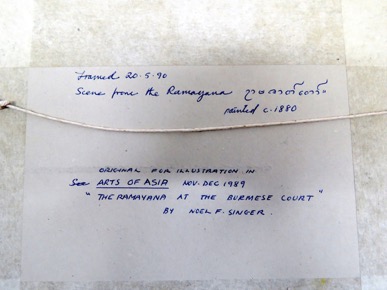 framed 20.5.90
Scene from the Ramayana
painted c.1880
ORIGINAL FOR ILLUSTRATION IN
See ARTS OF ASIA NOV. DEC 1989
"THE RAMAYANA AT THE BURMESE COURT"
BY NOEL F. SINGER.